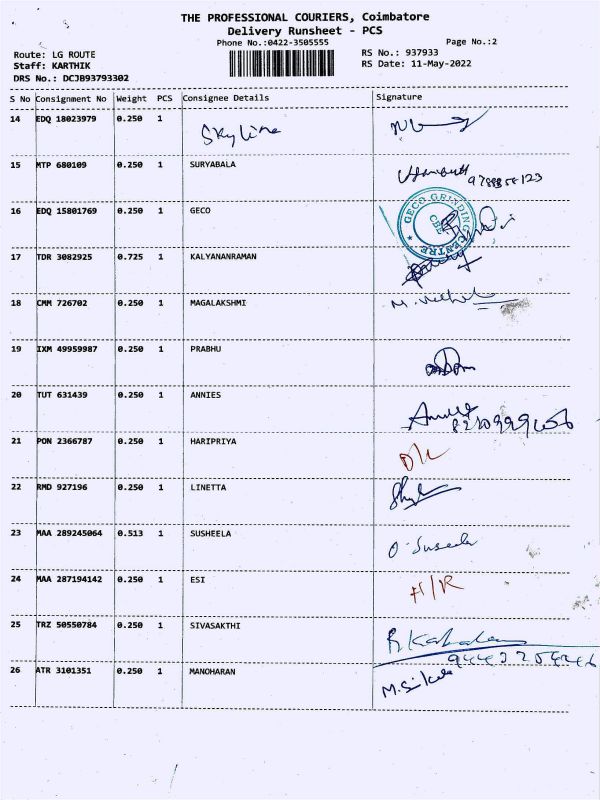 THE PROFESSIONAL COURIERS, Coimbatore
Delivery Runsheet - PCS
Phone No.:0422-3505555
Page No.:2
Route: LG ROUTE
RS No.: 937933
Staff: KARTHIK
RS Date: 11-May-2022
DRS No.: DCJB93793302
S No Consignment No Weight PCS Consignee Details Signature
14 EDQ 18023979 0.250 1 Skyline
15 MTP 680109 0.250 1 SURYABALA
16 EDQ 15801769 0.250 1 GECO
GECO GRINDING CENTRE
CBE
17 TDR 3082925 0.725 1 KALYANANRAMAN
18 CMM 726702 0.250 1 MAGALAKSHMI
19 IXM 49959987 0.250 1 PRABHU
20 TUT 631439 0.250 1 ANNIES
21 PON 2366787 0.250 1 HARIPRIYA D/L
22 RMD 927196 0.250 1 LINETTA
23 MAA 289245064 0.513 1 SUSHEELA O. Suseela
24 MAA 287194142 0.250 1 ESI H/R
25 TRZ 50550784 0.250 1 SIVASAKTHI
26 ATR 3101351 0.250 1 MANOHARAN